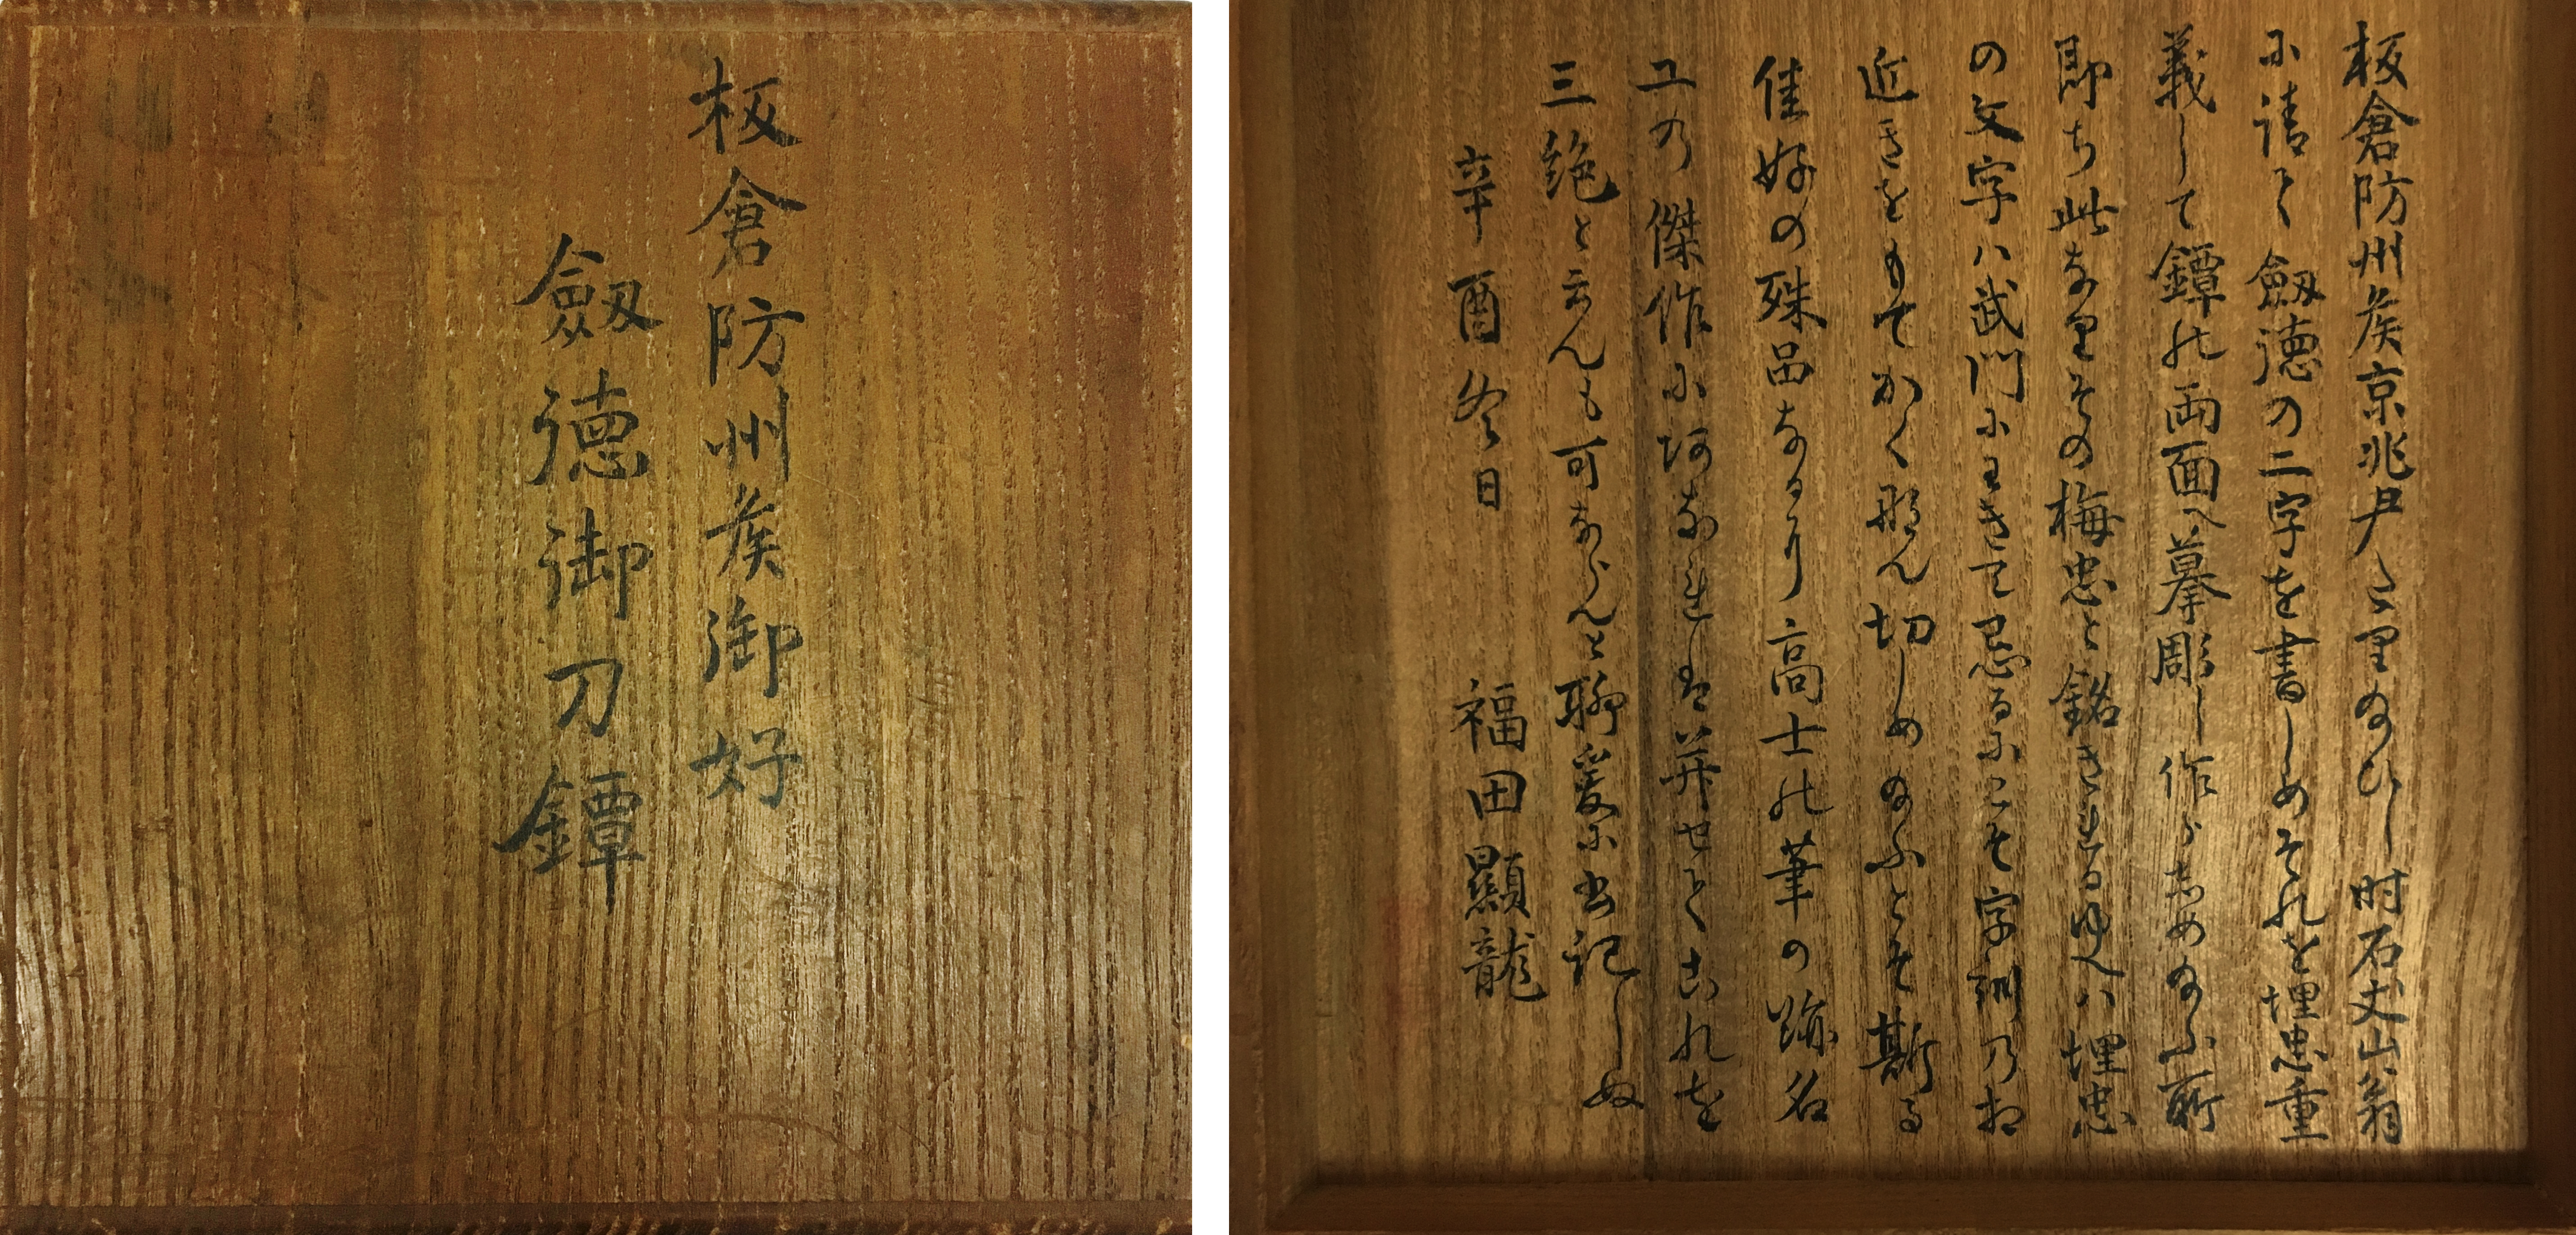 板倉防州侯御好
劔德御刀鐔
板倉防州侯京兆尹たり給ひし时石丈山翁
に請て劔德の二字を書しめそれを埋忠重
義して鐔の両面へ摹彫し作らしめ給ふ所
即ち此なり其の梅忠と銘されるゆへハ埋忠
の文字ハ武門にわきて忌るにこそ字訓乃相
近きをもてかく那ん切しめ給ふとそ斯る
佳好の殊品なるり高士の筆の跡名
工の傑作に坷なれしは并せてこれを
三絶と云んも可ならんと聊爰に書記しぬ
辛酉冬日 福田顯龍